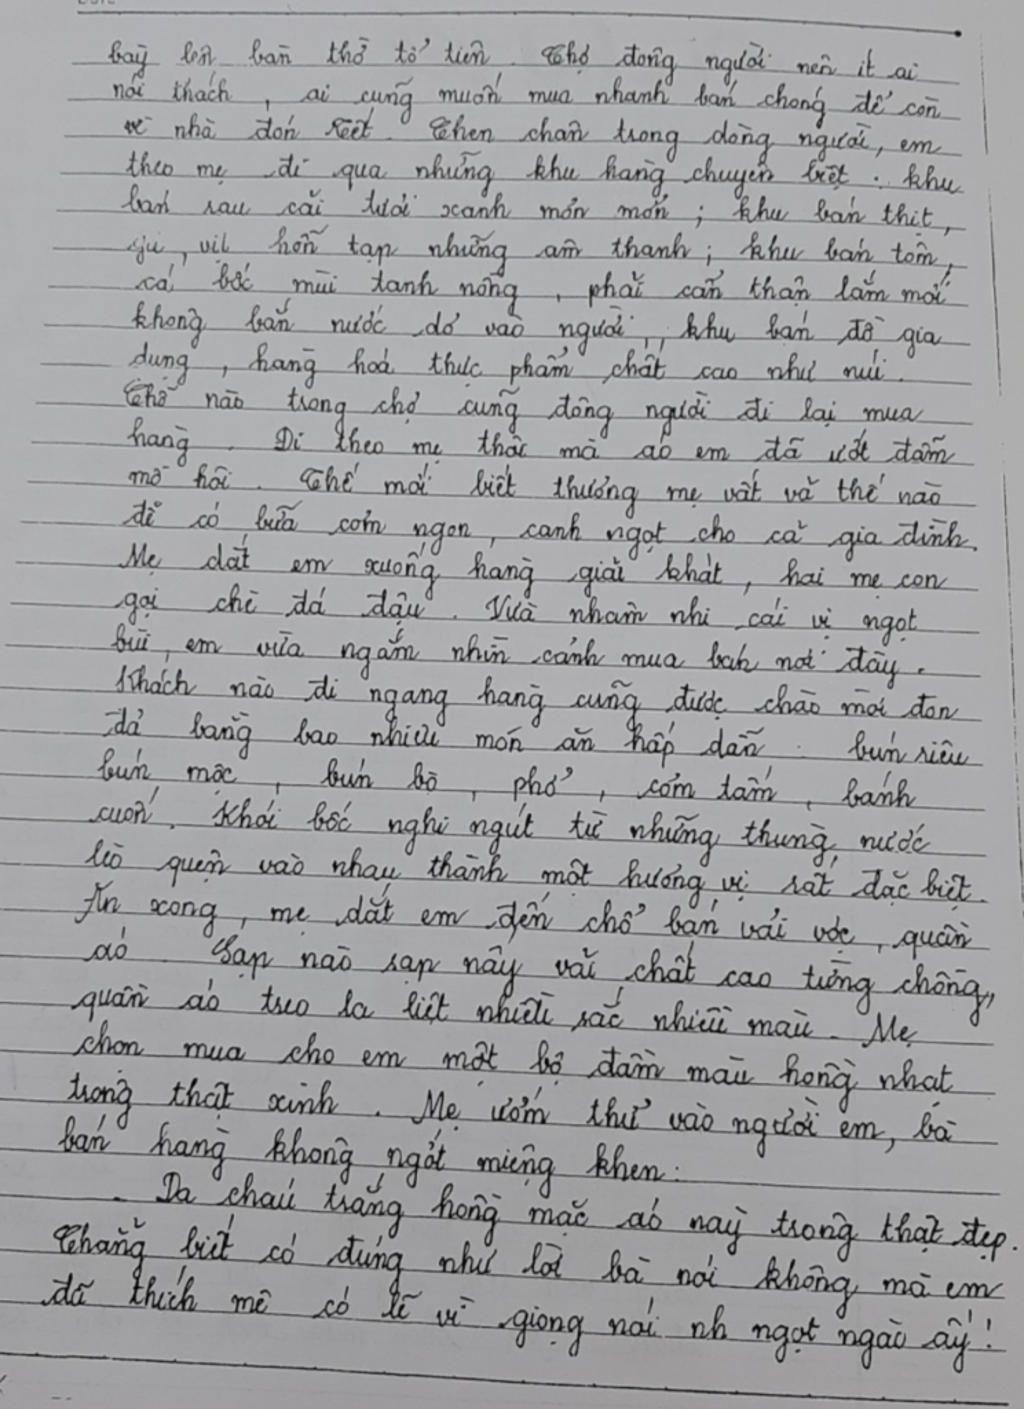 bày lên bàn thờ tổ tiên. Chợ đông người nên ít ai
nói thách, ai cũng muốn mua nhanh bán chóng để còn
về nhà đón Tết. Chen chân trong dòng người, em
theo mẹ đi qua những khu hàng chuyên biệt: khu
bán rau cải tươi xanh mơn mởn; khu bán thịt,
gà, vịt hỗn tạp những âm thanh; khu bán tôm,
cá bốc mùi tanh nồng, phải cẩn thận lắm mới
không bắn nước dơ vào người; khu bán đồ gia
dụng, hàng hoá thực phẩm chất cao như núi.
Chỗ nào trong chợ cũng đông người đi lại mua
hàng. Đi theo mẹ thôi mà áo em đã ướt đẫm
mồ hôi. Thế mới biết thương mẹ vất vả thế nào
để có bữa cơm ngon, canh ngọt cho cả gia đình.
Mẹ dắt em xuống hàng giải khát, hai mẹ con
gọi chè đá đậu. Vừa nhâm nhi cái vị ngọt
bùi, em vừa ngắm nhìn cảnh mua bán nơi đây.
Khách nào đi ngang hàng cũng được chào mời đon
đả bằng bao nhiêu món ăn hấp dẫn: bún riêu
bún mộc, bún bò, phở, cơm tấm, bánh
cuốn. Khói bốc nghi ngút từ những thùng nước
lèo quện vào nhau thành một hương vị rất đặc biệt.
Ăn xong, mẹ dắt em đến chỗ bán vải vóc, quần
áo. Sạp nào sạp nấy vải chất cao từng chồng,
quần áo treo la liệt nhiều sắc nhiều màu. Mẹ
chọn mua cho em một bộ đầm màu hồng nhạt
trông thật xinh. Mẹ ướm thử vào người em, bà
bán hàng không ngớt miệng khen:
- Da cháu trắng hồng mặc áo này trông thật đẹp.
Chẳng biết có đúng như lời bà nói không mà em
đã thích mê có lẽ vì giọng nói nh ngọt ngào ấy!